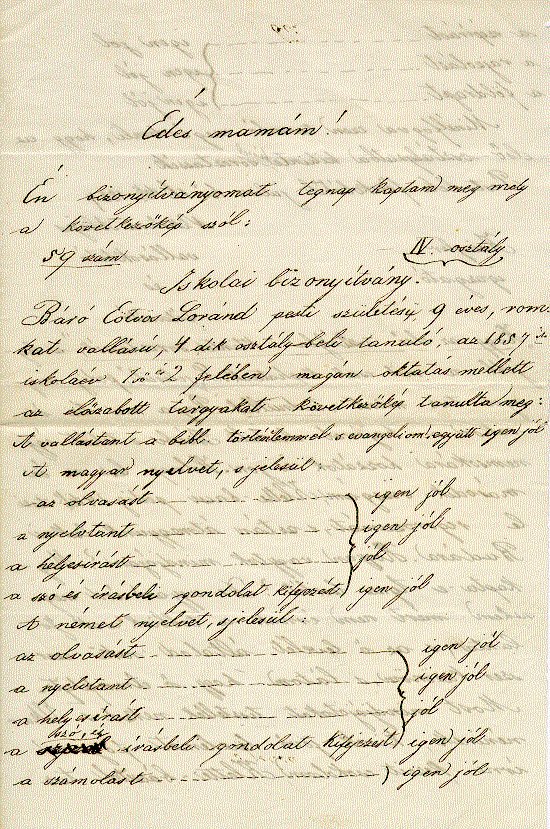 Édes mamám!
Én bizonyítványomat tegnap kaptam meg mely
a következőkép szól:
59 szám IV. osztály
Iskolai bizonyítvány.
Báró Eötvös Loránd pesti születésű 9 éves, rom.
kat vallású, 4 dik osztály-beli tanuló, az 1857
iskolaév 1ső és 2 felében magán oktatás mellett
az előszabott tárgyakat következőkép tanulta meg:
A vallástant a bibl. történlemmel s evangeliom. együtt igen jól
A magyar nyelvet, s jelesül:
az olvasást igen jól
a nyelvtant igen jól
a helyesírást jól
a szó és írásbeli gondolat kifejezést igen jól
A német nyelvet, s jelesül:
az olvasást igen jól
a nyelvtant igen jól
a helyesírást jól
a szó, és írásbeli gondolat kifejezést igen jól
a számolást igen jól